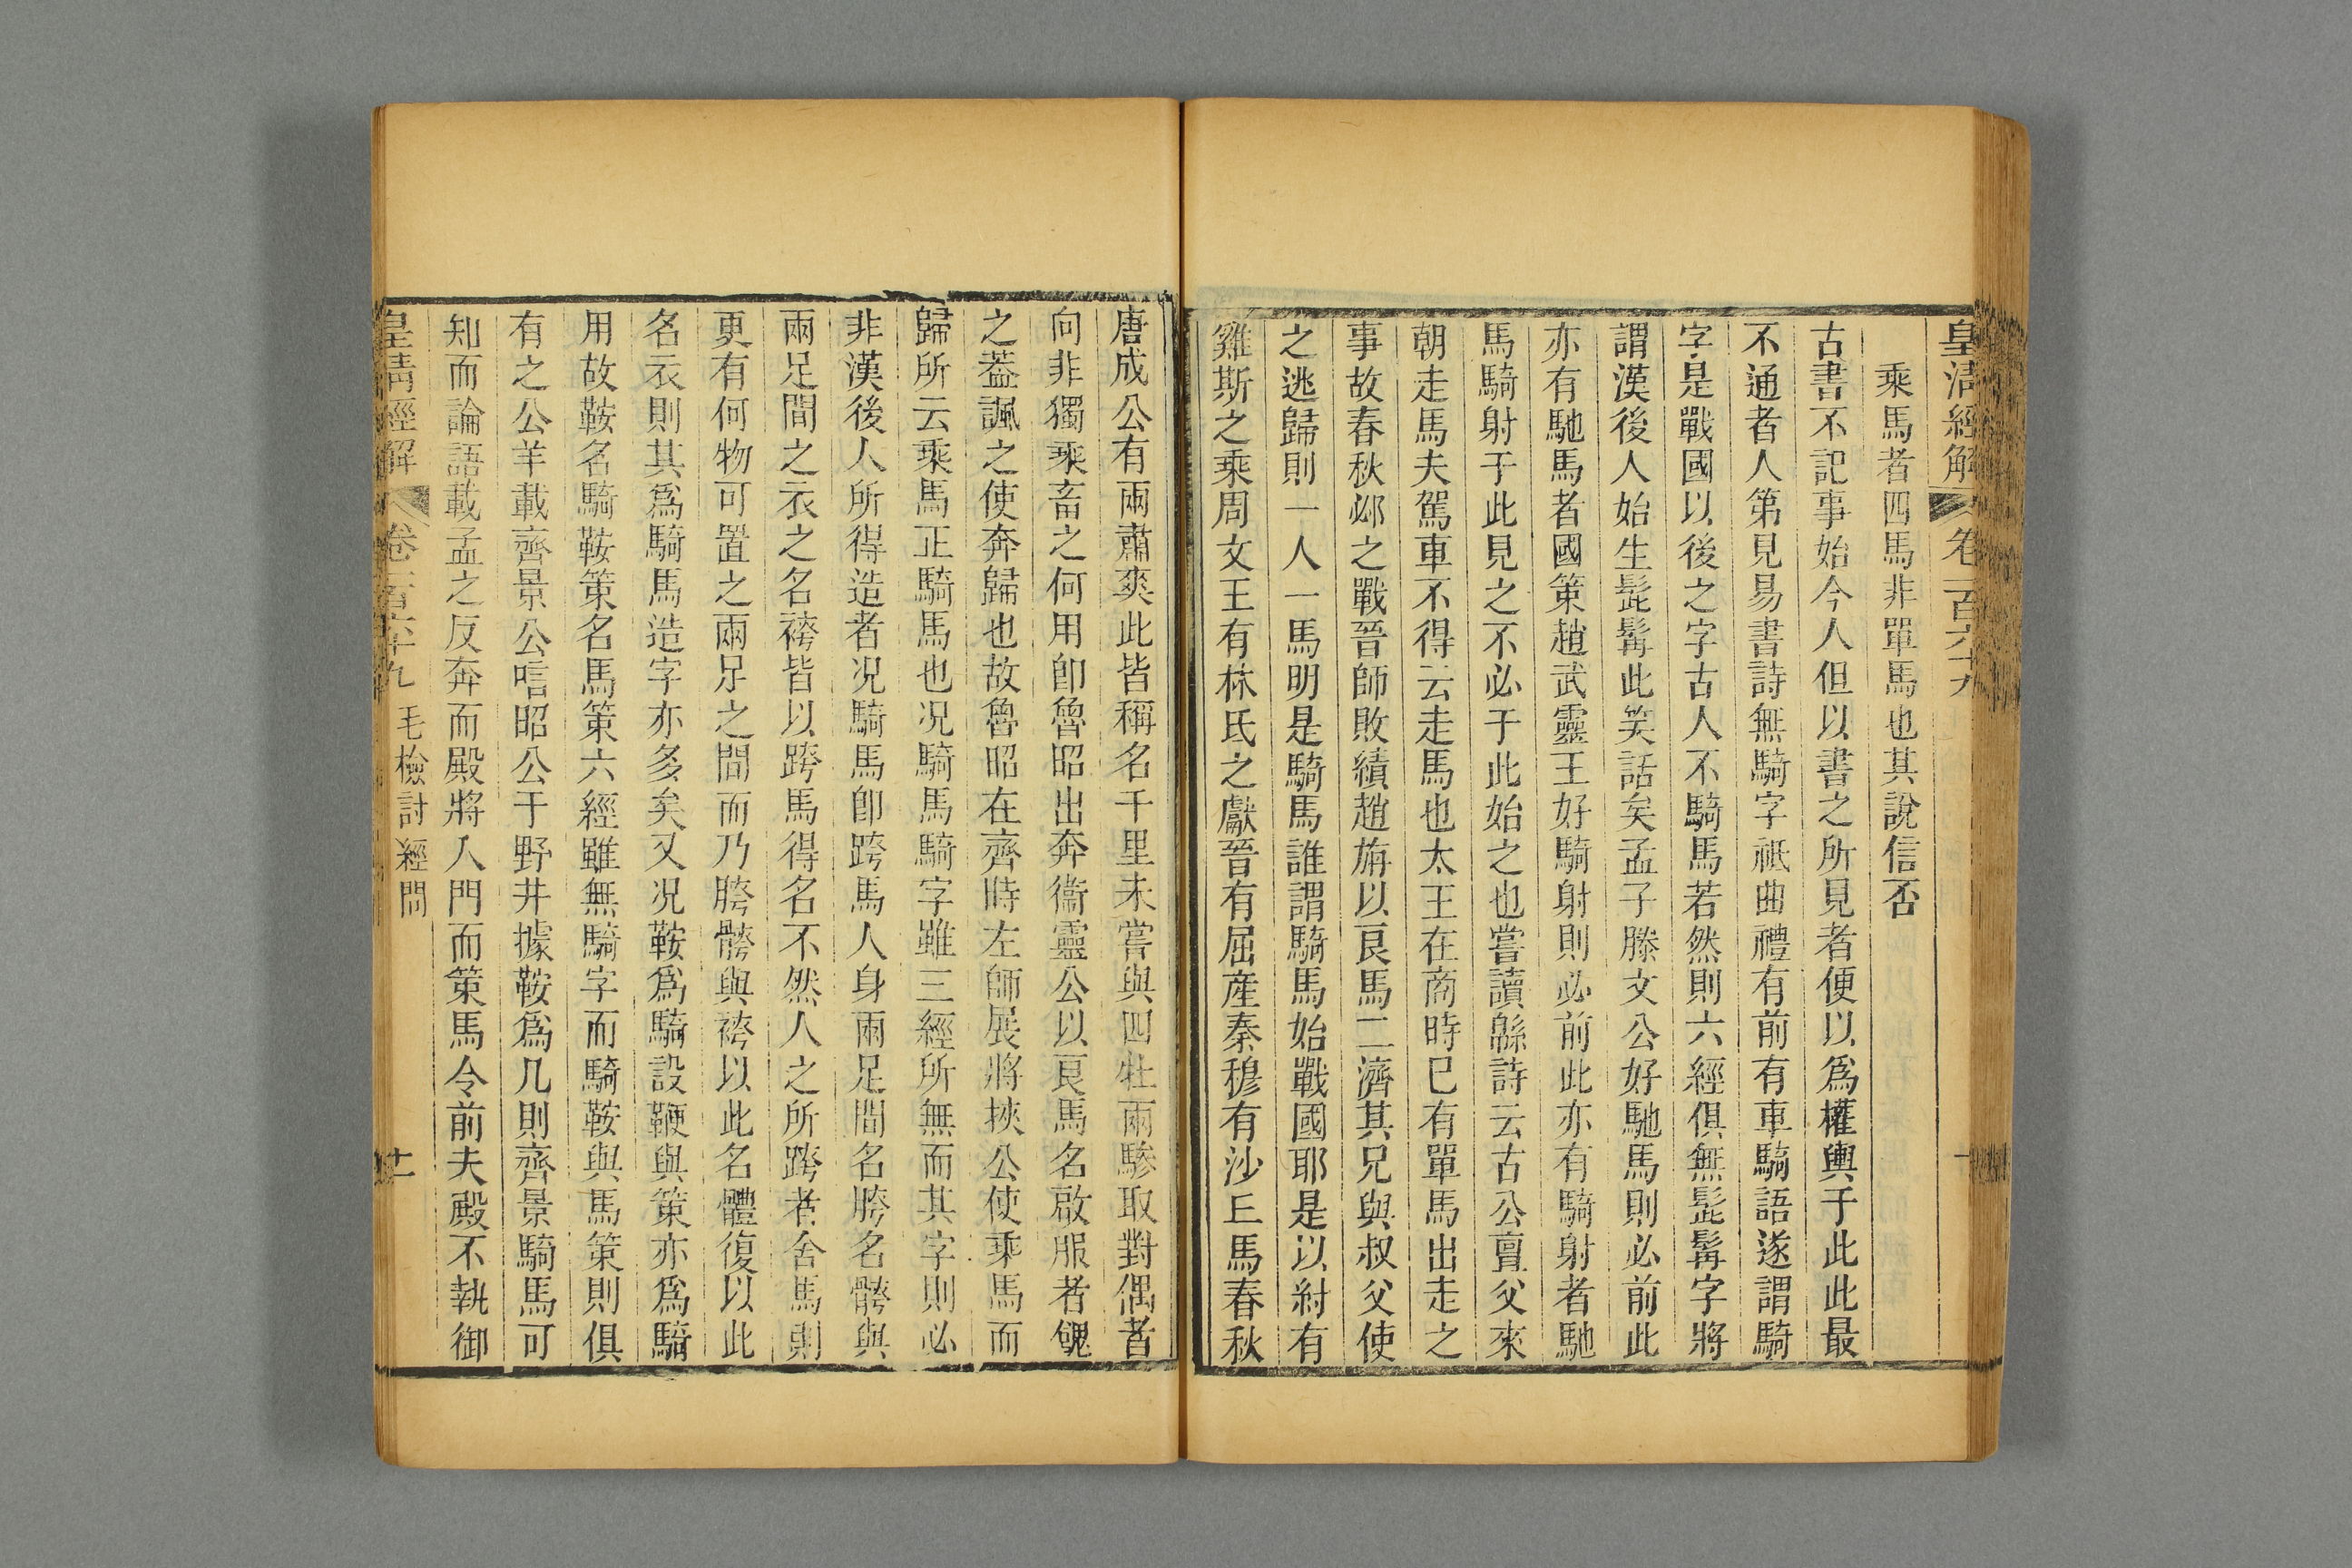 皇清經解 卷一百六十九
乘馬者四馬非單馬也其說信否
古書不記事始今人但以書之所見者便以爲權輿于此此最
不通者人第見易書詩無騎字祗曲禮有前有車騎語遂謂騎
字是戰國以後之字古人不騎馬若然則六經俱無髭髯字將
謂漢後人始生髭髯此笑話矣孟子滕文公好馳馬則必前此
亦有馳馬者國策趙武靈王好騎射則必前此亦有騎射者馳
馬騎射于此見之不必于此始之也嘗讀緜詩云古公亶父來
朝走馬夫駕車不得云走馬也太王在商時已有單馬出走之
事故春秋邲之戰晉師敗績趙旃以良馬二濟其兄與叔父使
之逃歸則一人一馬明是騎馬誰謂騎馬始戰國耶是以紂有
雞斯之乘周文王有林氏之獻晉有屈產秦穆有沙丘馬春秋
唐成公有兩肅爽此皆稱名千里未嘗與四牡兩驂取對偶者
向非獨乘畜之何用卽魯昭出奔衞靈公以良馬名啟服者餽
之蓋諷之使奔歸也故魯昭在齊時左師展將挾公使乘馬而
歸所云乘馬正騎馬也况騎馬騎字雖三經所無而其字則必
非漢後人所得造者况騎馬卽跨馬人身兩足間名胯名髈與
兩足間之衣之名袴皆以跨馬得名不然人之所跨者舍馬則
更有何物可置之兩足之間而乃胯髈與袴以此名體復以此
名衣則其爲騎馬造字亦多矣又况鞍爲騎設鞭與策亦爲騎
用故鞍名騎鞍策名馬策六經雖無騎字而騎鞍與馬策則俱
有之公羊載齊景公唁昭公于野井據鞍爲几則齊景騎馬可
知而論語載孟之反奔而殿將入門而策馬令前夫殿不執御
皇清經解 卷一百六十九 毛檢討經問 十一